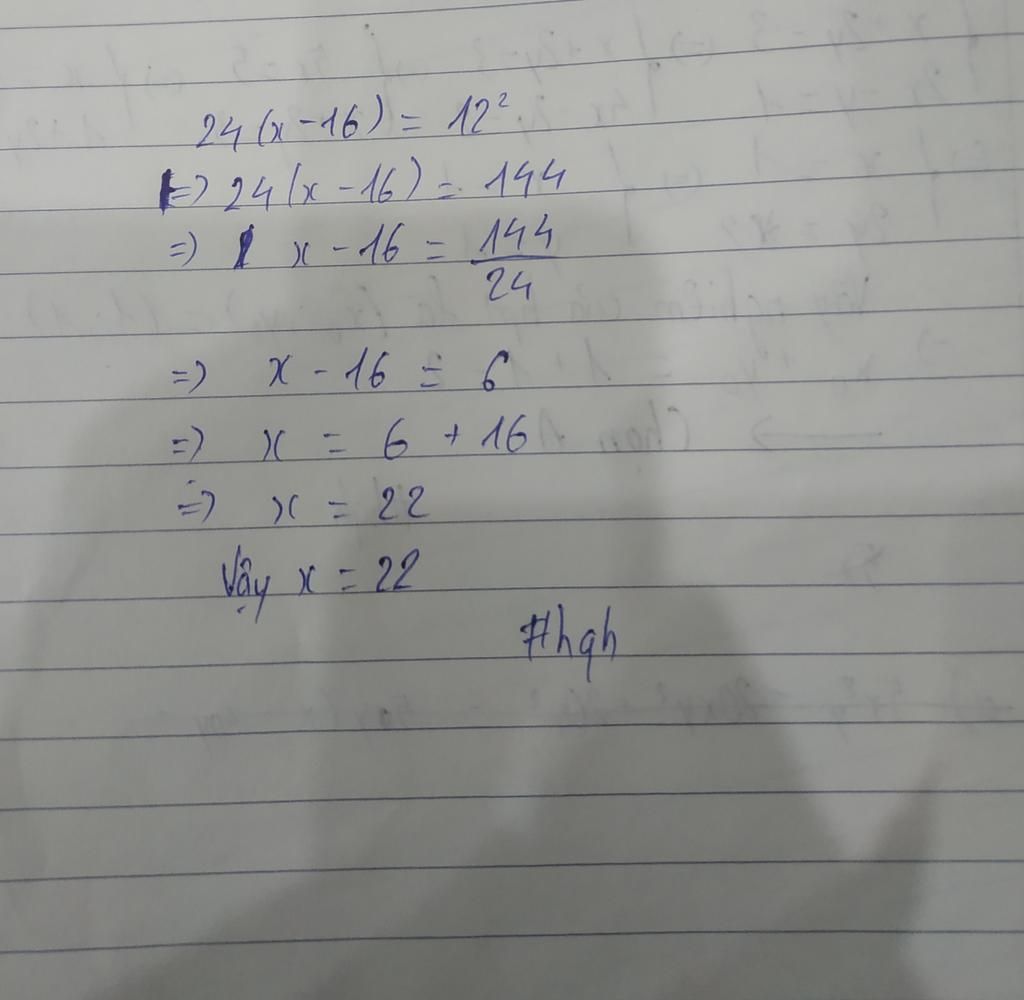 24(x-16) = 12²
=) 24(x-16) = 144
=) x - 16 = 144/24
=) x - 16 = 6
=) x = 6 + 16
=) x = 22
Vậy x = 22
#hqh